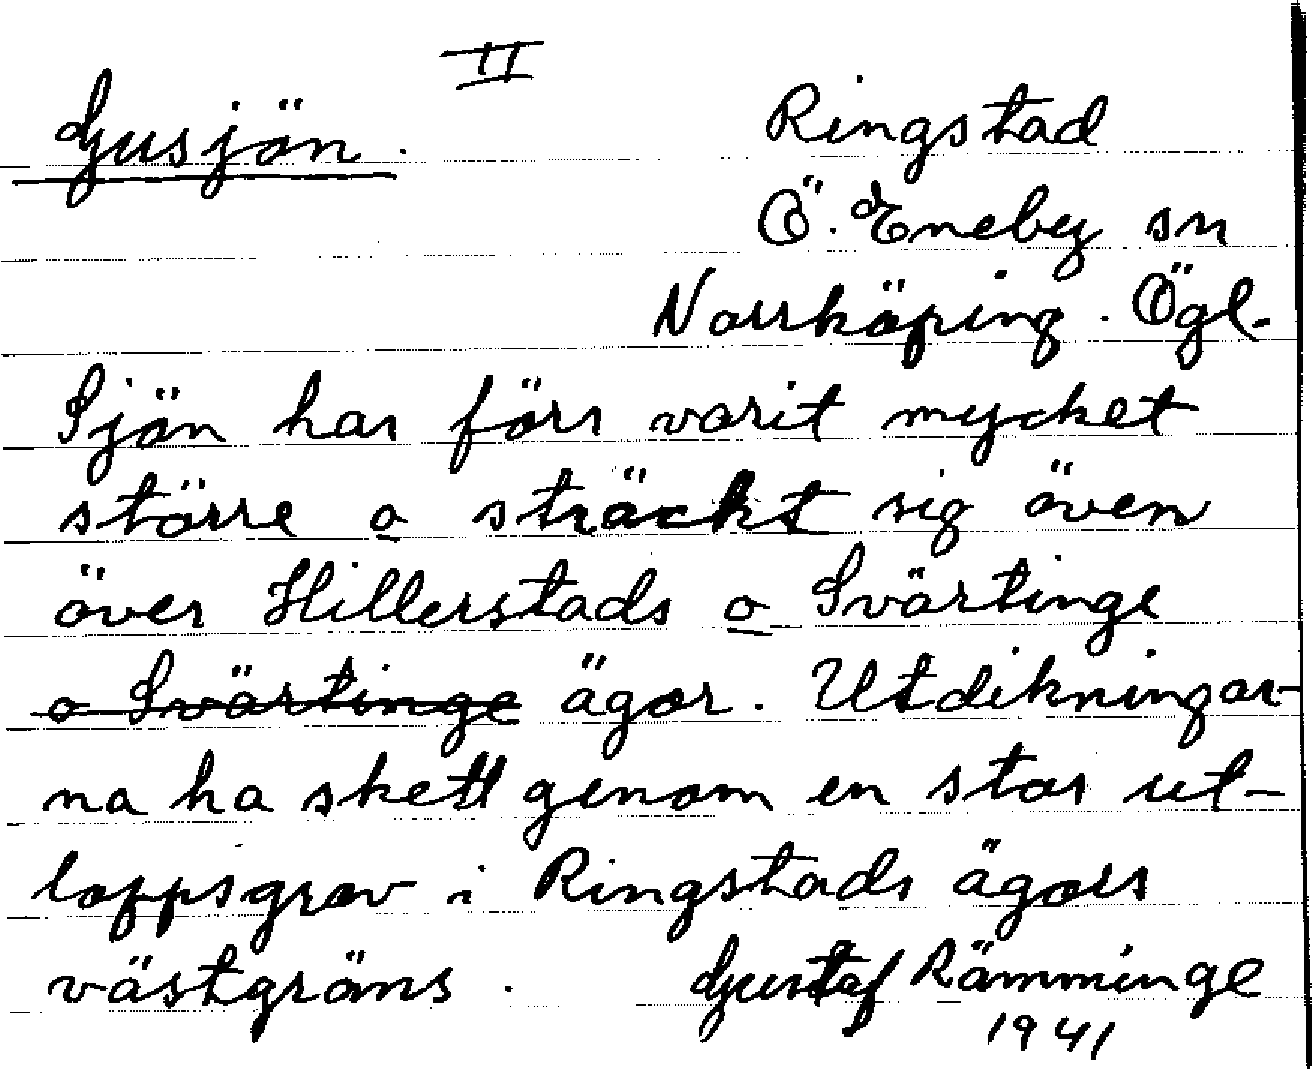 II
Gusjön.
Ringstad
Ö. Eneby sn
Norrköping. Ögl.
Sjön har förr varit mycket
större o sträckt sig även
över Hillerstads o Svärtinge
o Svärtinge ägor. Utdikningar-
na ha skett genom en stor ut-
loppsgrav i Ringstads ägors
västgräns. Gustaf Rämminge
1941